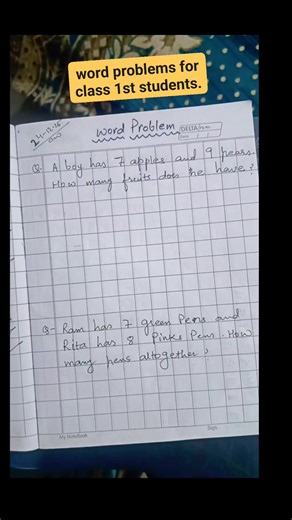 word problems for
class 1st students.
Word Problem
DELTA
Date
Q- A boy has 7 apples and 9 pears.
How many fruits does he have?
Q- Ram has 7 green Pens and
Rita has 8 Pinks Pens. How
many pens altogether?
My Notebook
Sign.